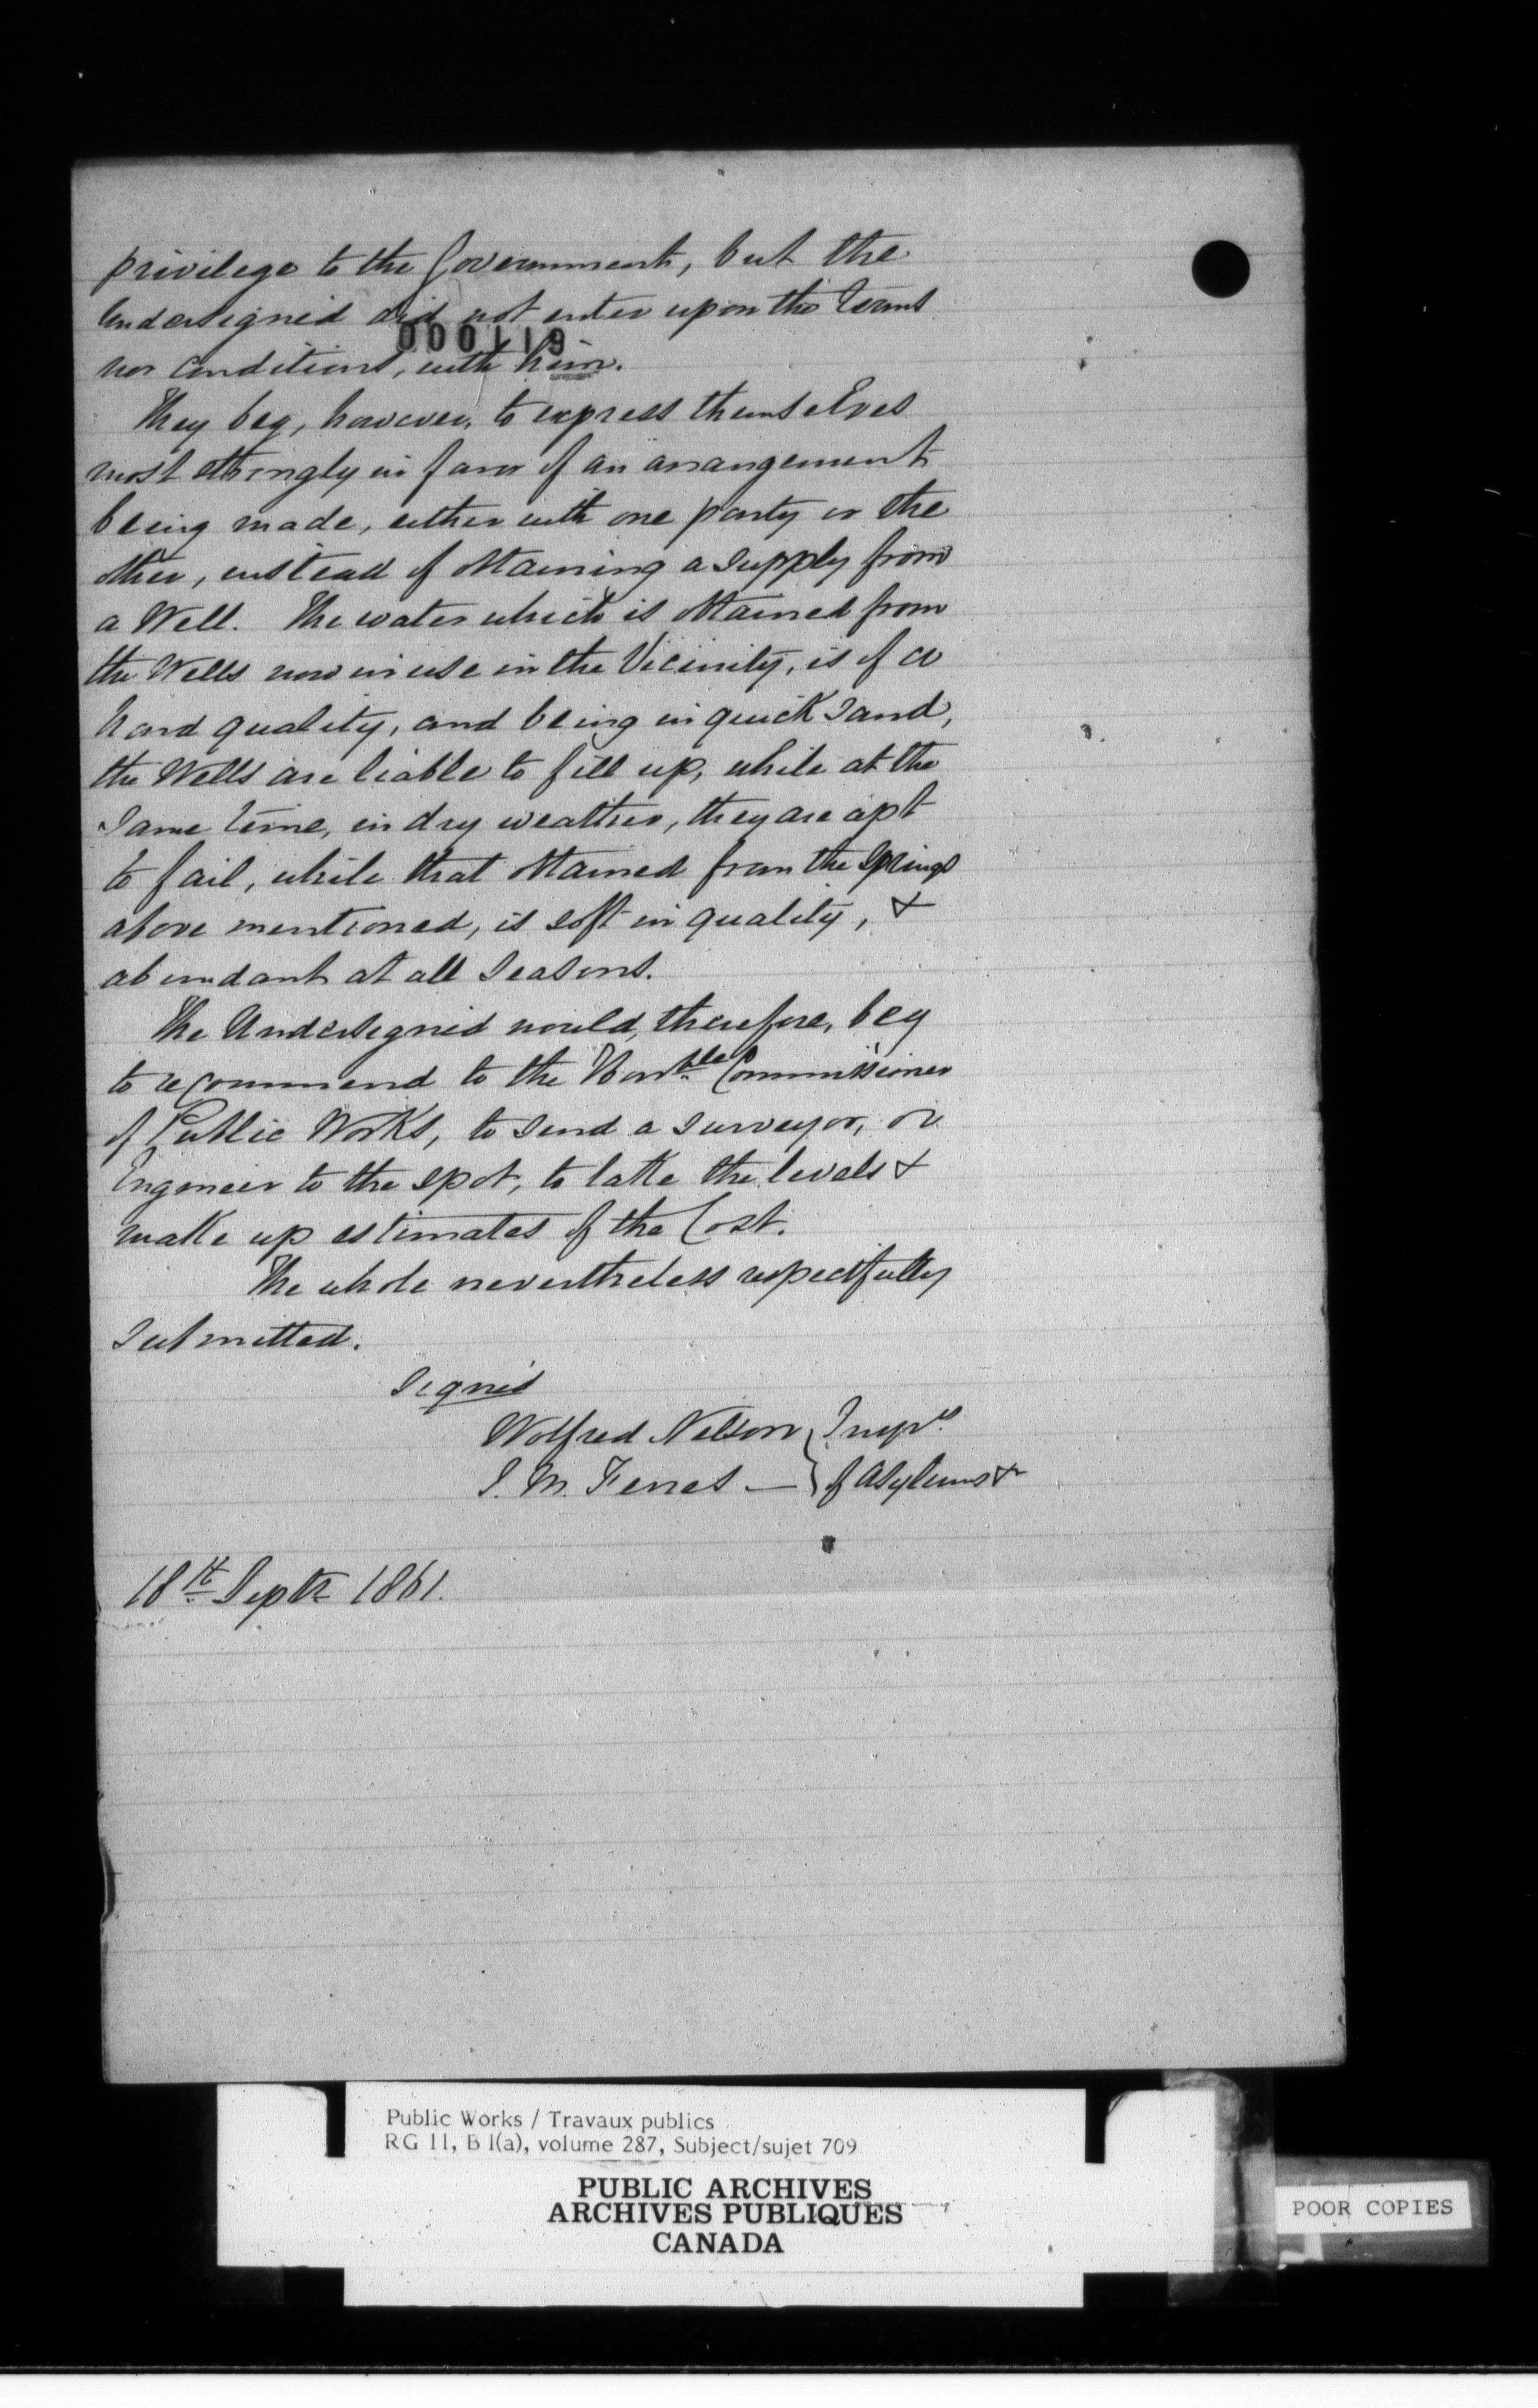 privilege to the Government, but the
Undersigned did not enter upon the terms
000119
nor conditions, with him.
They beg, however, to express themselves
most strongly in favor of an arrangement
being made, either with one party or the
other, instead of obtaining a supply from
a Well. The water which is obtained from
the Wells now in use in the Vicinity, is of a
hard quality, and being in quick sand,
the Wells are liable to fill up, while at the
same time, in dry weather, they are apt
to fail, while that obtained from the Springs
above mentioned, is soft in quality, &
abundant at all seasons.
The Undersigned would, therefore, beg
to recommend to the Honble Commissioner
of Public Works, to send a surveyor, or
Engineer to the spot, to take the levels &
make up estimates of the Cost.
The whole nevertheless respectfully
submitted.
Signed
Wolfred Nelson } Insprs
J. M. Ferres — } of Asylums &
18th Septr 1861.
Public Works / Travaux publics
RG 11, B 1(a), volume 287, Subject/sujet 709
PUBLIC ARCHIVES
ARCHIVES PUBLIQUES
CANADA
POOR COPIES